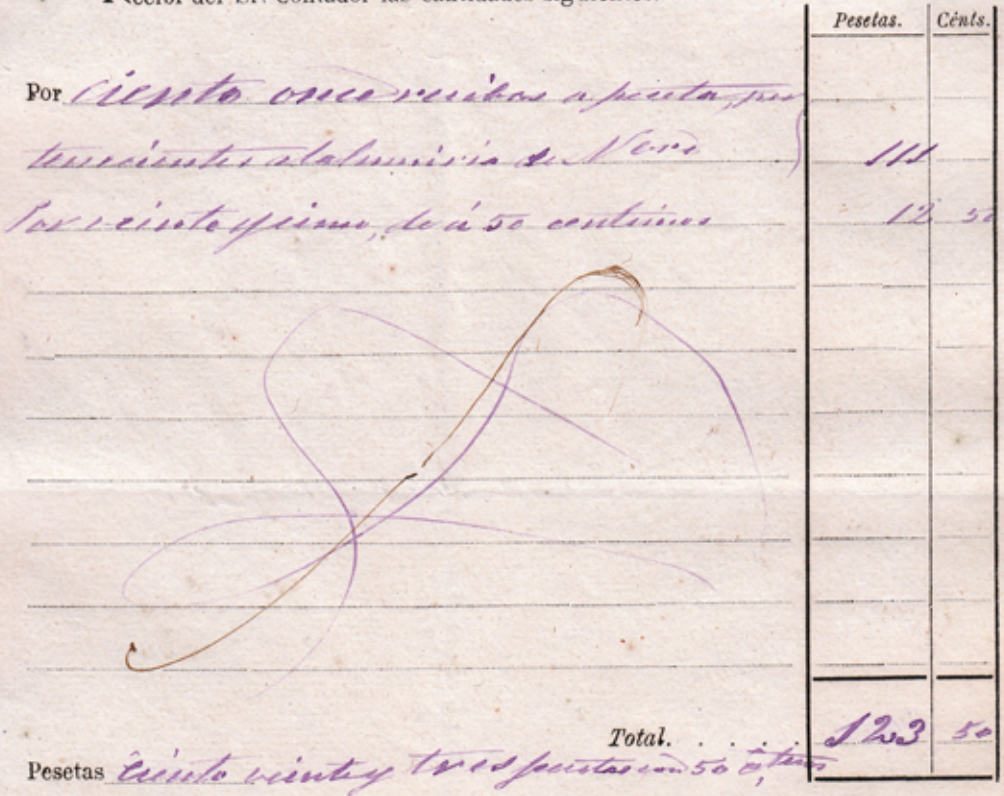 Recibí del Sr. Contador las cantidades siguientes:
Pesetas. Cénts.
Por Ciento once recibos a peseta, per
tenecientes al de Nov.o 111
Por veinte y cinco, de á 50 centimos 12 50
Total. . . . . . 123 50
Pesetas Ciento veinte y tres pesetas con 50